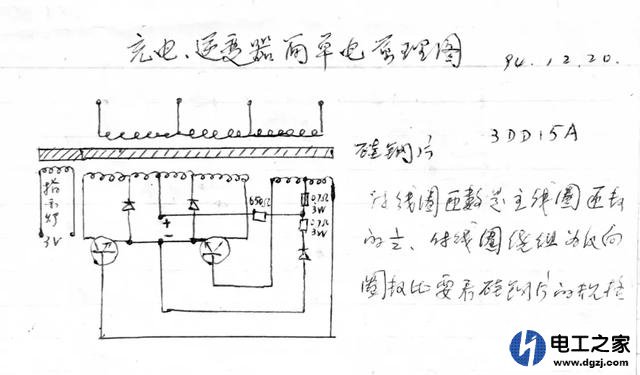 充电、逆变器简单电原理图 94.12.20.
硅钢片 3DD15A
付线圈匝数是主线圈匝数
的 付线圈绕组为反向
圈数比要看硅钢片的规格
指示灯
3V
650Ω
3W
3W
+
-
电工之家
www.dgzj.com